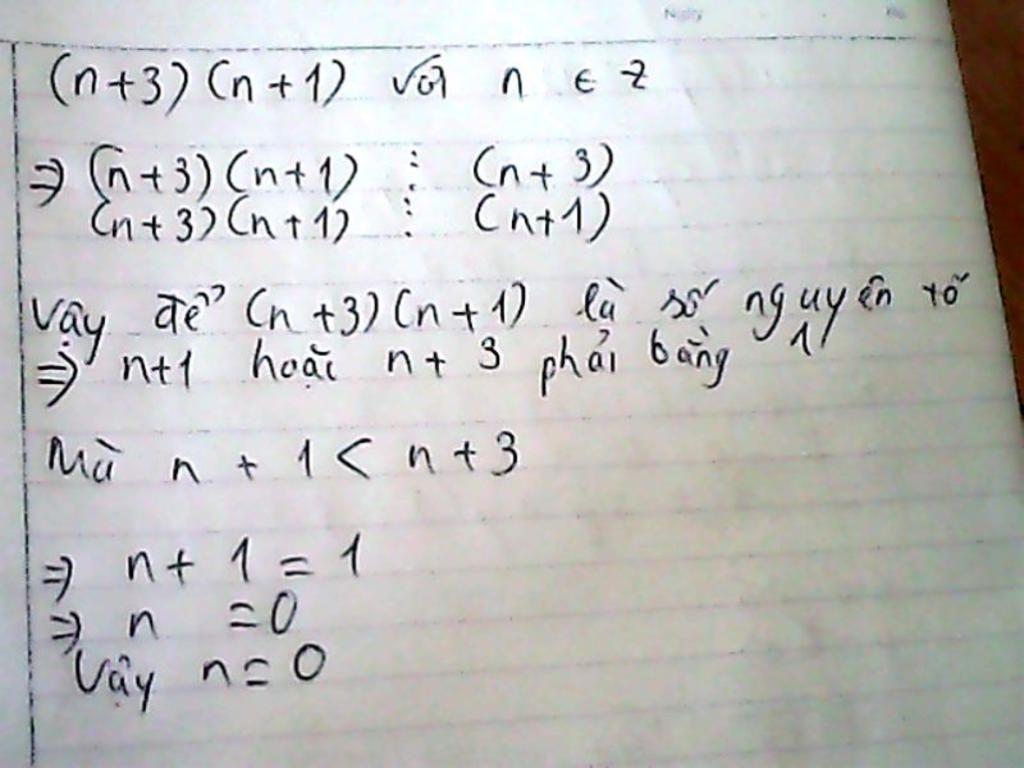 Ngày No
(n+3)(n+1) với n ∈ Z
⇒ (n+3)(n+1) ⋮ (n+3)
(n+3)(n+1) ⋮ (n+1)
Vậy để (n+3)(n+1) là số nguyên tố
⇒ n+1 hoặc n+3 phải bằng 1
Mà n + 1 < n + 3
⇒ n + 1 = 1
⇒ n = 0
Vậy n = 0